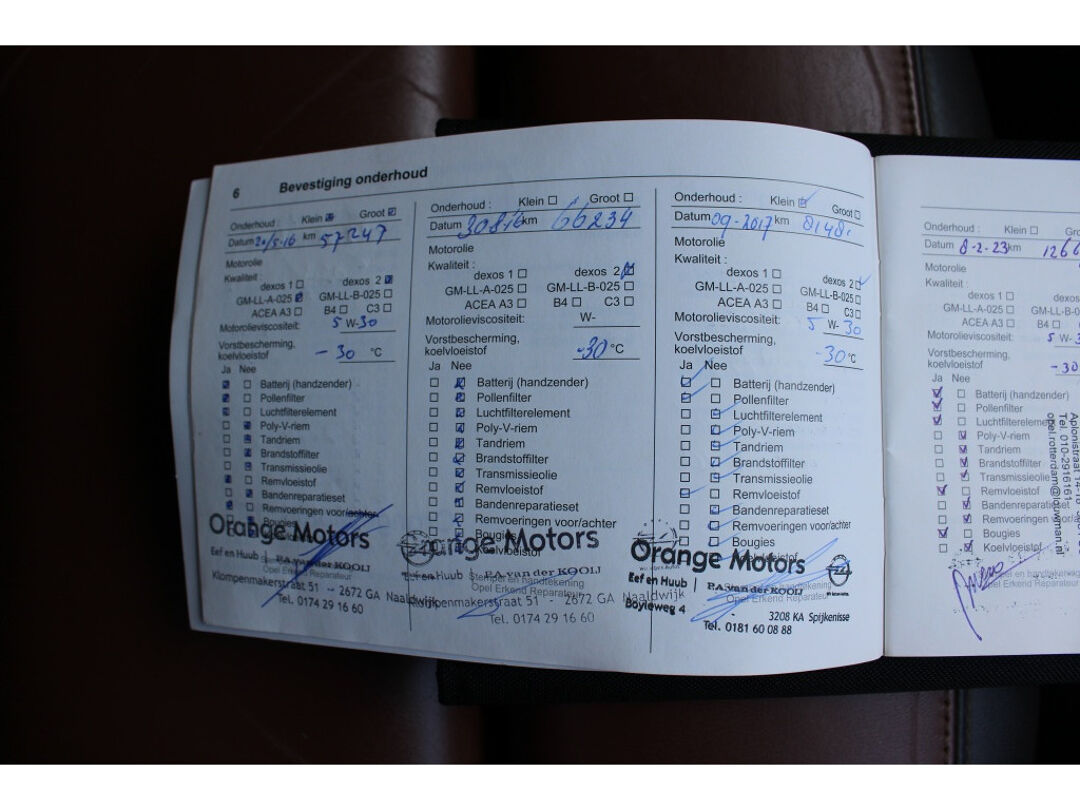 6 Bevestiging onderhoud
Onderhoud Klein Groot
Datum 20/5-16 km 57247
Motorolie
Kwaliteit :
dexos 1 dexos 2
GM-LL-A-025 GM-LL-B-025
ACEA A3 B4 C3
Motorolieviscositeit: 5 W-30
Vorstbescherming,
koelvloeistof -30 °C
Ja Nee
Batterij (handzender)
Pollenfilter
Luchtfilterelement
Poly-V-riem
Tandriem
Brandstoffilter
Transmissieolie
Remvloeistof
Bandenreparatieset
Remvoeringen voor/achter
Bougies
Orange Motors
Eef en Huub P.A. van der KOOIJ
Opel Erkend Reparateur
Klompenmakerstraat 51 - 2672 GA Naaldwijk
Tel. 0174 29 16 60
Onderhoud : Klein Groot
Datum 30816 km 66234
Motorolie
Kwaliteit :
dexos 1 dexos 2
GM-LL-A-025 GM-LL-B-025
ACEA A3 B4 C3
Motorolieviscositeit: W-
Vorstbescherming,
koelvloeistof -30 °C
Ja Nee
Batterij (handzender)
Pollenfilter
Luchtfilterelement
Poly-V-riem
Tandriem
Brandstoffilter
Transmissieolie
Remvloeistof
Bandenreparatieset
Remvoeringen voor/achter
Bougies
Koelvloeistof
Orange Motors
Eef en Huub Stempel en handtekening P.A. van der KOOIJ
Opel Erkend Reparateur
Klompenmakerstraat 51 - 2672 GA Naaldwijk
Tel. 0174 29 16 60
Onderhoud : Klein Groot
Datum 09-2017 km 8148
Motorolie
Kwaliteit :
dexos 1 dexos 2
GM-LL-A-025 GM-LL-B-025
ACEA A3 B4 C3
Motorolieviscositeit: 5 W-30
Vorstbescherming,
koelvloeistof -30 °C
Ja Nee
Batterij (handzender)
Pollenfilter
Luchtfilterelement
Poly-V-riem
Tandriem
Brandstoffilter
Transmissieolie
Remvloeistof
Bandenreparatieset
Remvoeringen voor/achter
Bougies
Koelvloeistof
Orange Motors
Eef en Huub P.A. van der KOOIJ
Opel Erkend Reparateur
Boyleweg 4 - 3208 KA Spijkenisse
Tel. 0181 60 08 88
Onderhoud : Klein
Datum 8-2-23 km 126
Motorolie
Kwaliteit :
dexos 1 dexos
GM-LL-A-025 GM-LL-B-025
ACEA A3 B4
Motorolieviscositeit: 5 W-
Vorstbescherming,
koelvloeistof -30
Ja Nee
Batterij (handzender)
Pollenfilter
Luchtfilterelement
Poly-V-riem
Tandriem
Brandstoffilter
Transmissieolie
Remvloeistof
Bandenreparatieset
Remvoeringen voor
Bougies
Koelvloeistof
Tel. 010-2916161
opel.rotterdam@louwman.nl